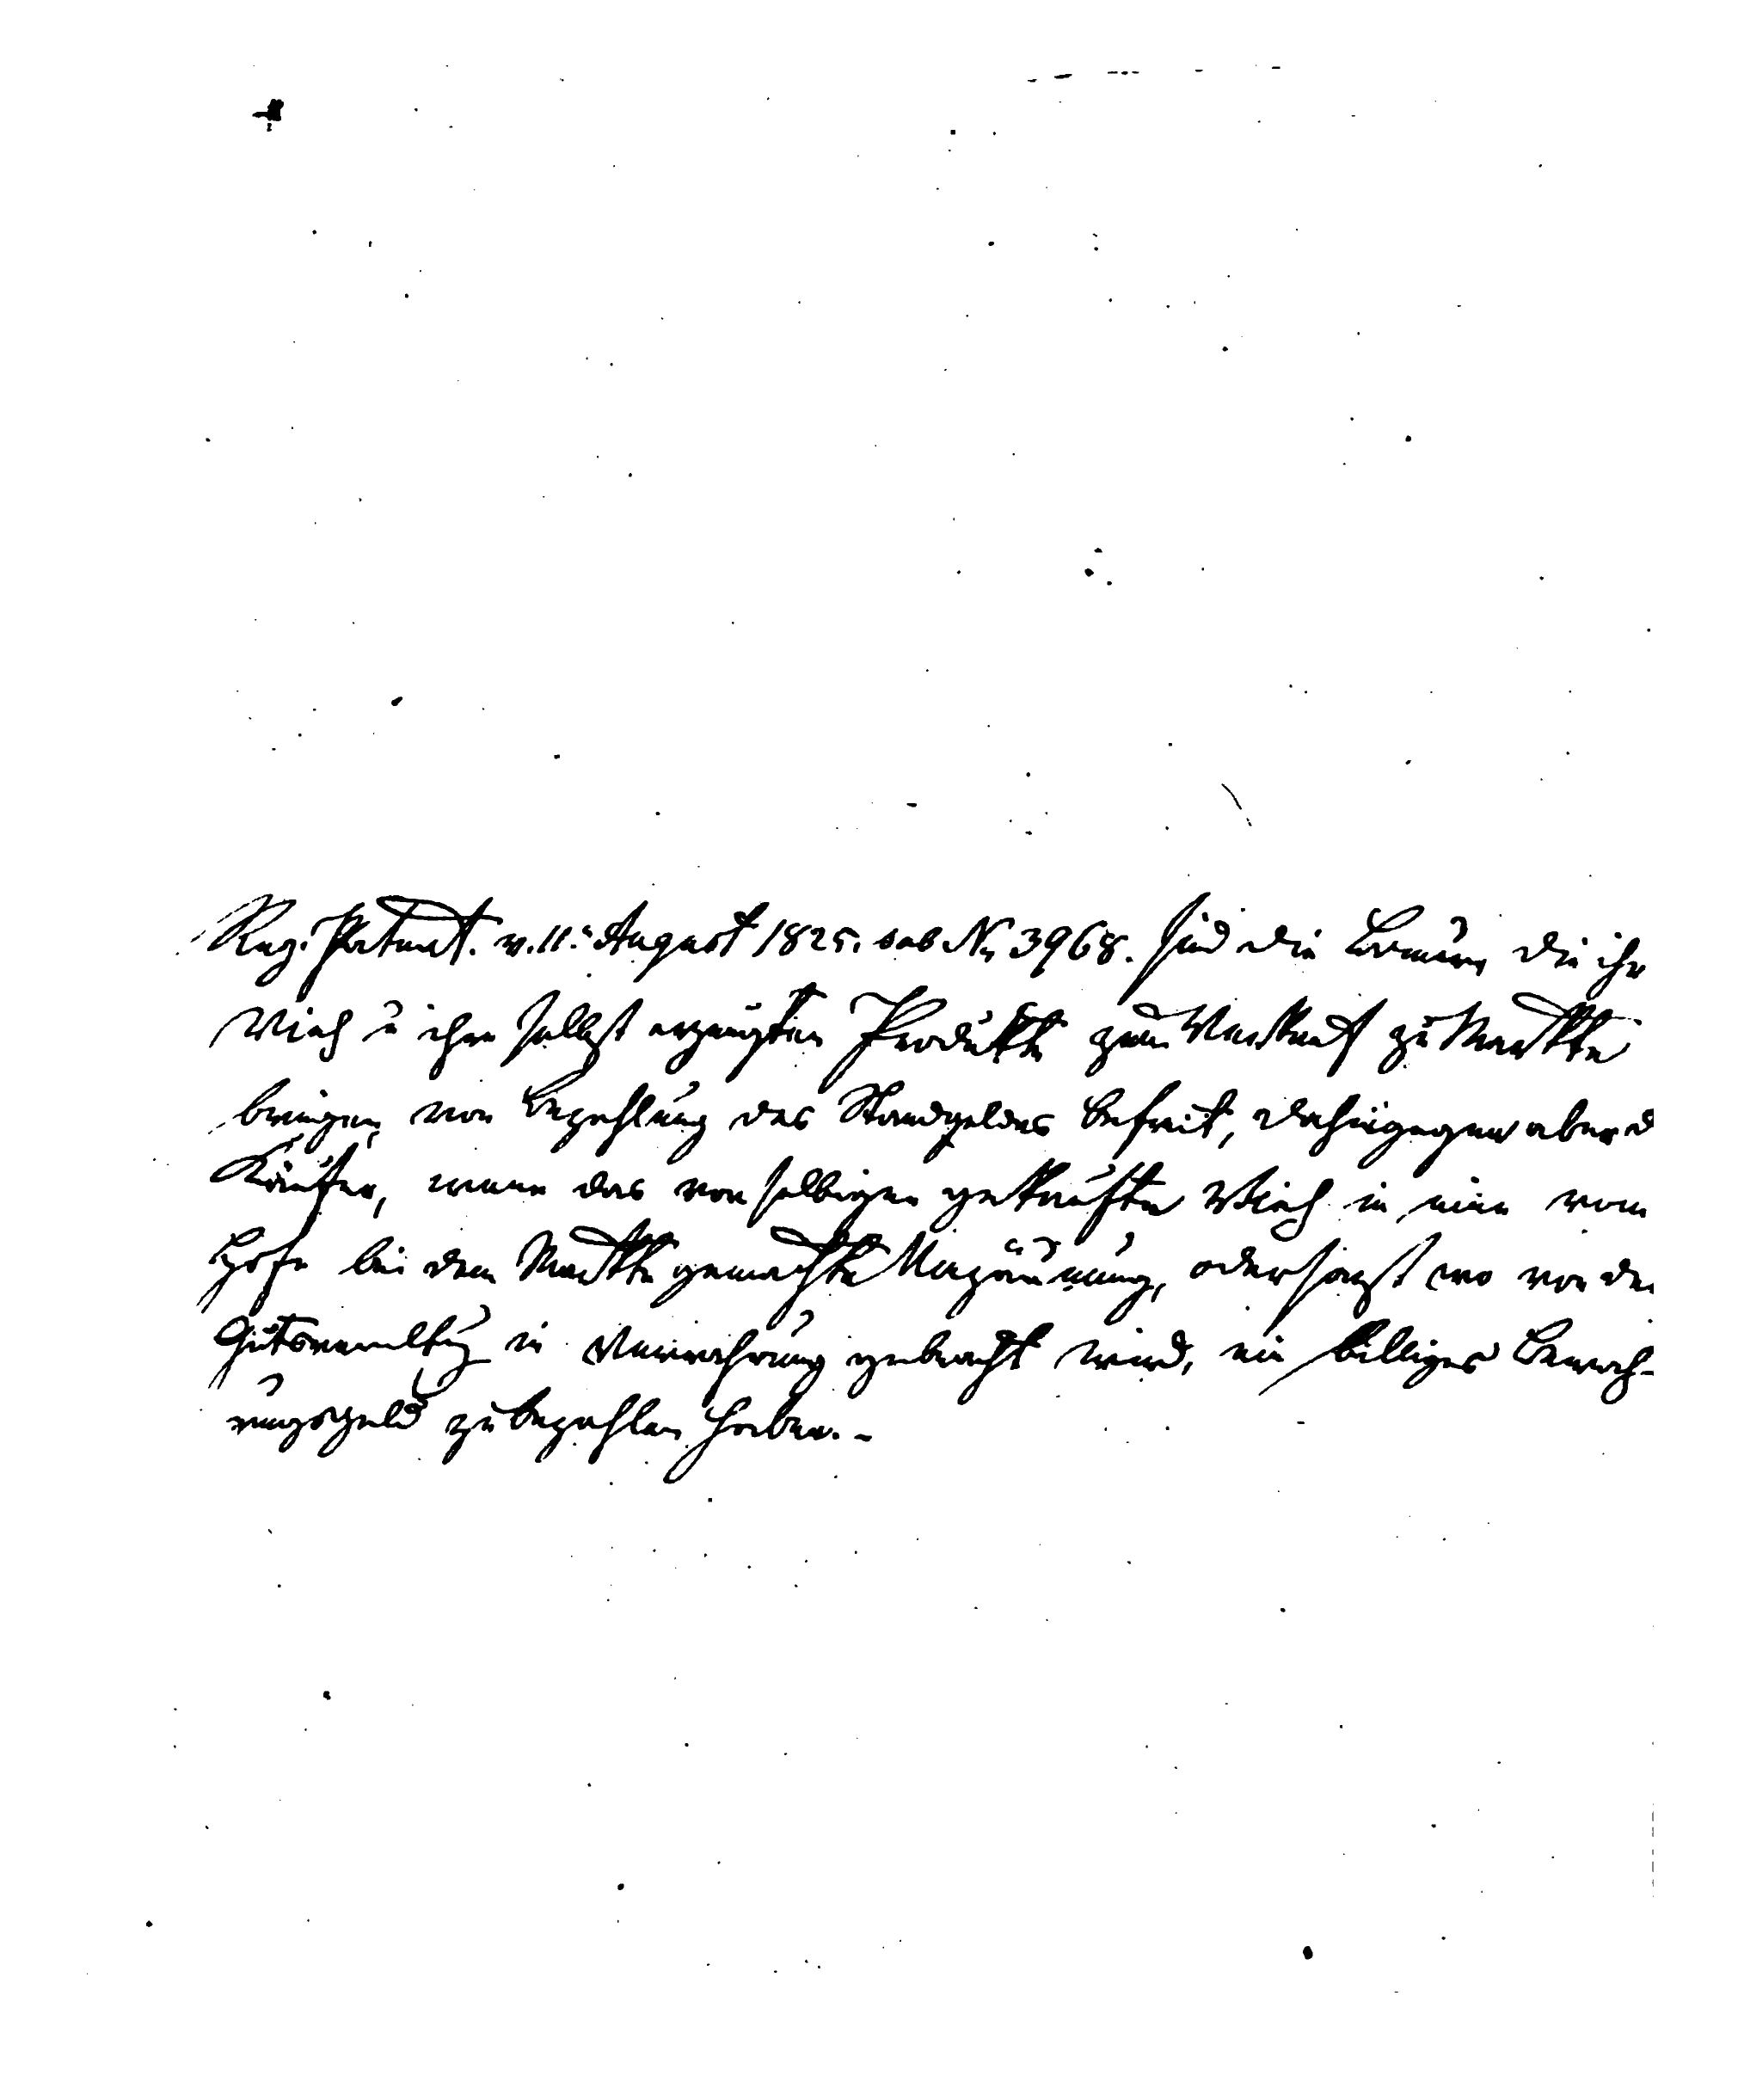 Reg. Patent. v. 11t. August 1825. sub No 3968. sind die Bauern, die ihr
Vieh u ihre selbst erzeugten Produkte zum Verkauf zu Markte
bringen, von Bezahlung des Standgeldes befreit, dahingegen aber d
Käufer, wenn das von selbigen gekaufte Vieh in eine vom
Hofe bei dem Markte gemachte Umzäunung, oder sonst wo von der
Gutsverwltg in Verwahrung gebracht wird, ein billiges Bewah-
rungsgeld zu bezahlen haben. -